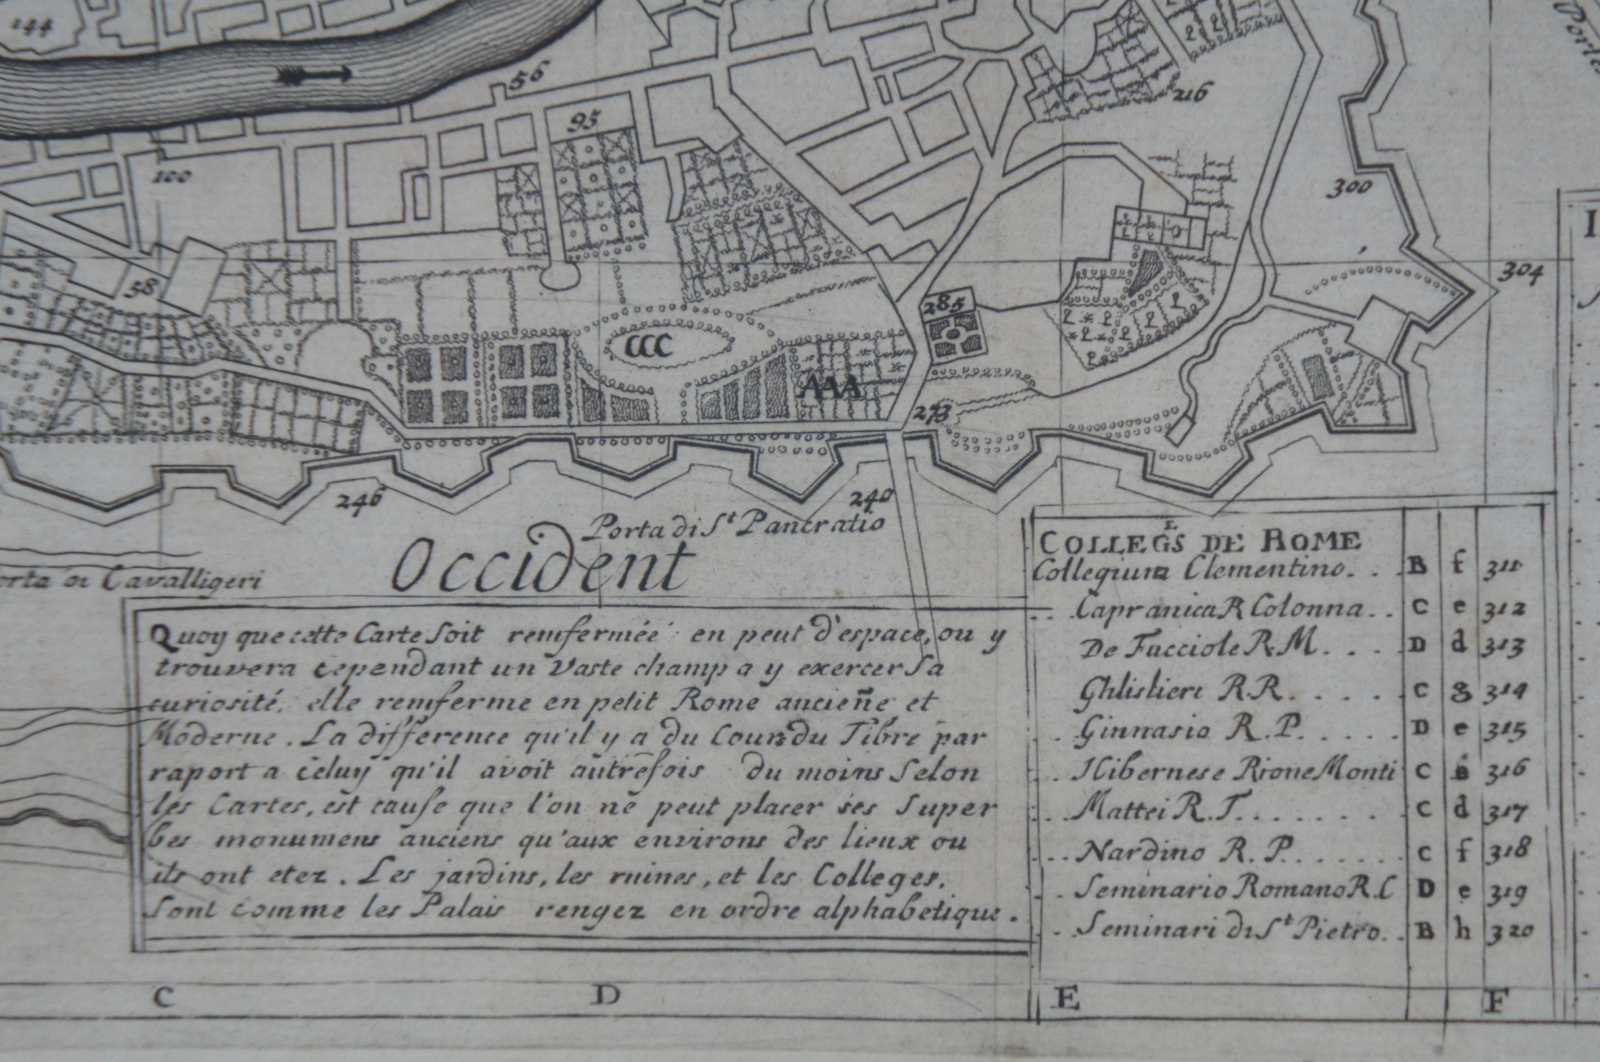 144
56
95
216
100
300
Porte
58
304
285
CCC
AAA
273
246
240
Porta di St Pancratio
Occident
orta di Cavalligeri
Quoy que cette Carte soit remfermée en peut d'espace, ou y
trouvera cependant un vaste champ a y exercer sa
curiosité, elle remferme en petit Rome ancien̄e et
Moderne. La difference qu'il y a du Cours du Tibre par
raport a celuy qu'il avoit autrefois du moins selon
les Cartes, est cause que l'on ne peut placer ses super
bes monumens anciens qu'aux environs des lieux ou
ils ont etez. Les jardins, les ruines, et les Colleges,
sont comme les Palais rengez en ordre alphabetique.
COLLEGS DE ROME
Collegium Clementino. . . B f 311
Capranica R Colonna. . C e 312
De Facciole R. M. . . . D d 313
Ghlislieri R.R. . . . . C g 314
Ginnasio R. P. . . . . . D e 315
Hibernese Rione Monti C 316
Mattei R. T. . . . . . . C d 317
Nardino R. P. . . . . . . C f 318
Seminario Romano R. C D e 319
Seminari di St Pietro. . B h 320
C D E F